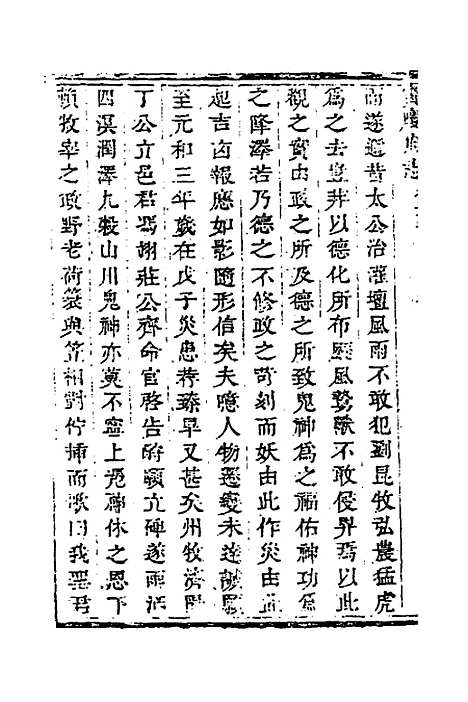 而遂避昔太公治灌壇風雨不敢犯劉昆牧弘農猛虎
爲之去豈非以德化所布厲風騺獸不敢侵界焉以此
觀之實由政之所及德之所致鬼神爲之福佑神功爲
之降澤若乃德之不修政之苛刻而妖由此作災由
起吉凶報應如影隨形信矣夫噫人物遷變未
至元和三年歲在戊子災患荐臻旱又甚矣州牧濟陽
丁公立邑君馮翊莊公齊命官啓告府願立碑遂雨活
四溟潤澤九穀山川鬼神亦莫不寧上荷神休之恩下
賴牧宰之政野老荷蓑與笠相對佇揷而歌曰我